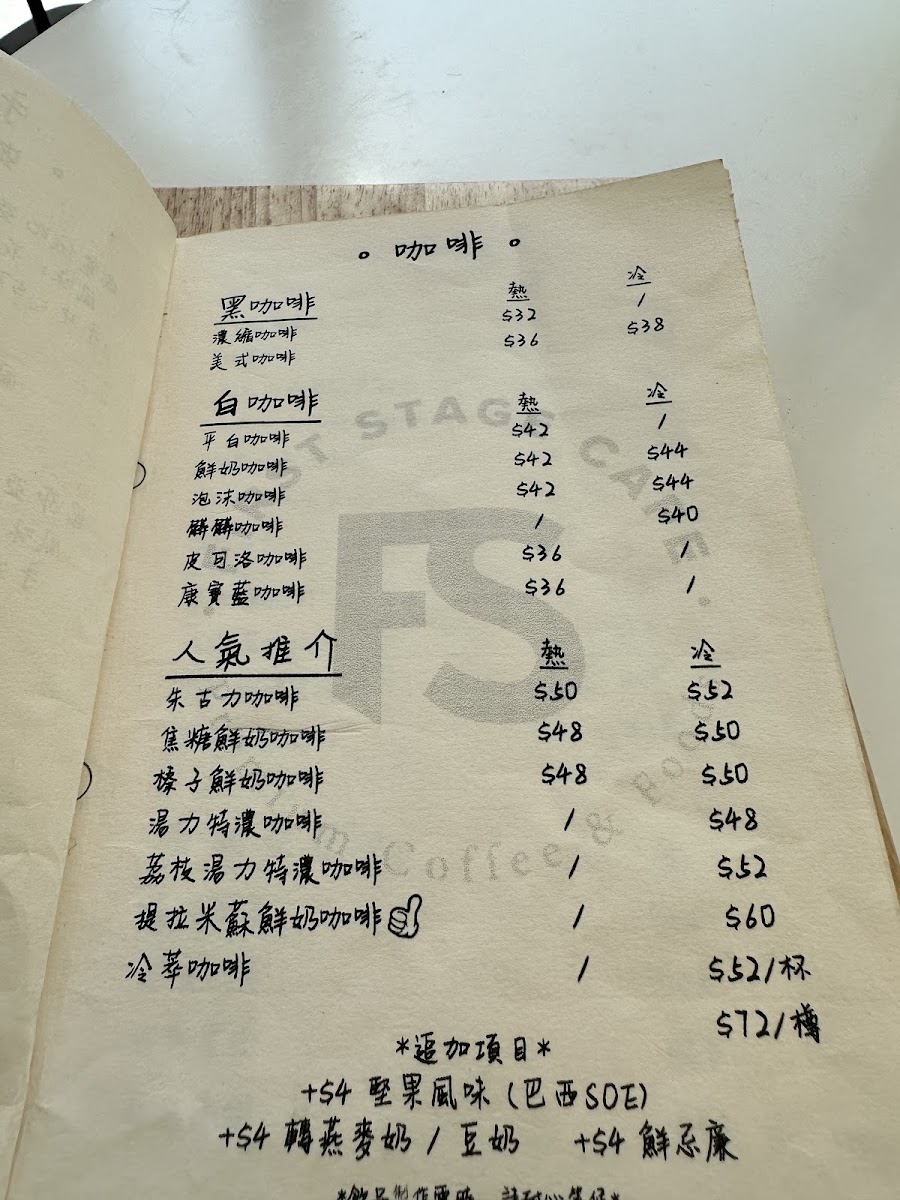 。咖啡。
黑咖啡 熱 冷
濃縮咖啡 $32 /
美式咖啡 $36 $38
白咖啡 熱 冷
平白咖啡 $42 /
鮮奶咖啡 $42 $44
泡沫咖啡 $42 $44
髒髒咖啡 / $40
皮可洛咖啡 $36 /
康寶藍咖啡 $36 /
人氣推介 熱 冷
朱古力咖啡 $50 $52
焦糖鮮奶咖啡 $48 $50
榛子鮮奶咖啡 $48 $50
湯力特濃咖啡 / $48
荔枝湯力特濃咖啡 / $52
提拉米蘇鮮奶咖啡 / $60
冷萃咖啡 / $52/杯
$72/樽
*追加項目*
+$4 堅果風味 (巴西SOE)
+$4 轉燕麥奶 / 豆奶 +$4 鮮忌廉
*飲品製作需時，請耐心等候*
STAGE CAFE
FS
Coffee &